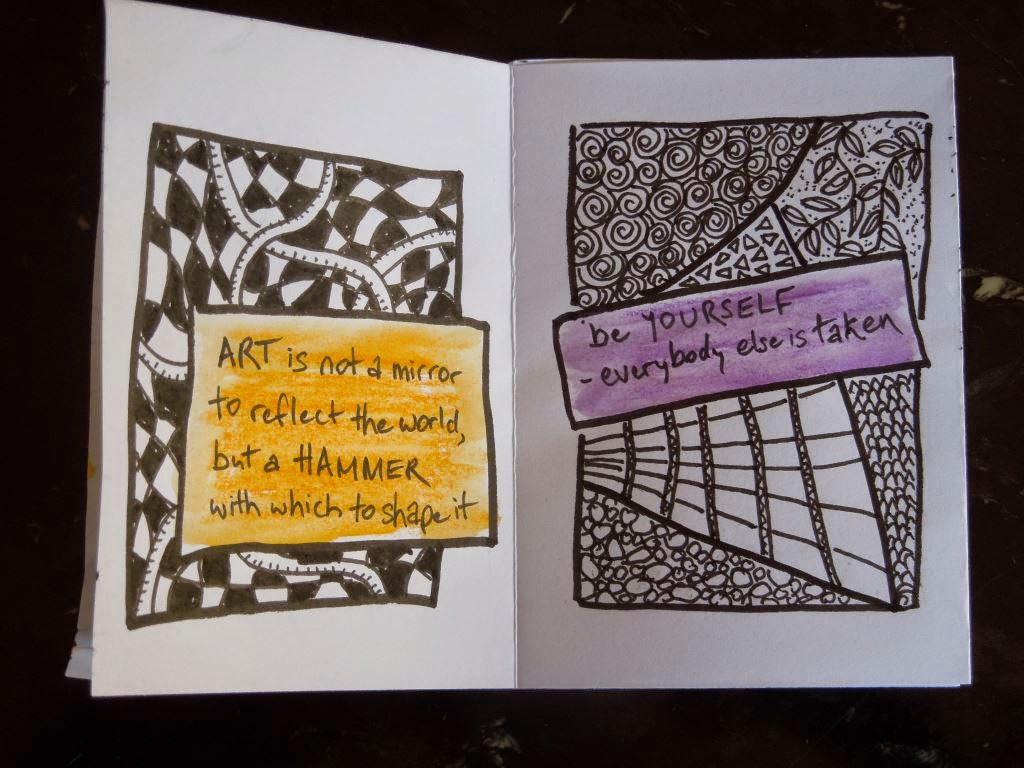 ART is not a mirror
to reflect the world,
but a HAMMER
with which to shape it
be YOURSELF
- everybody else is taken